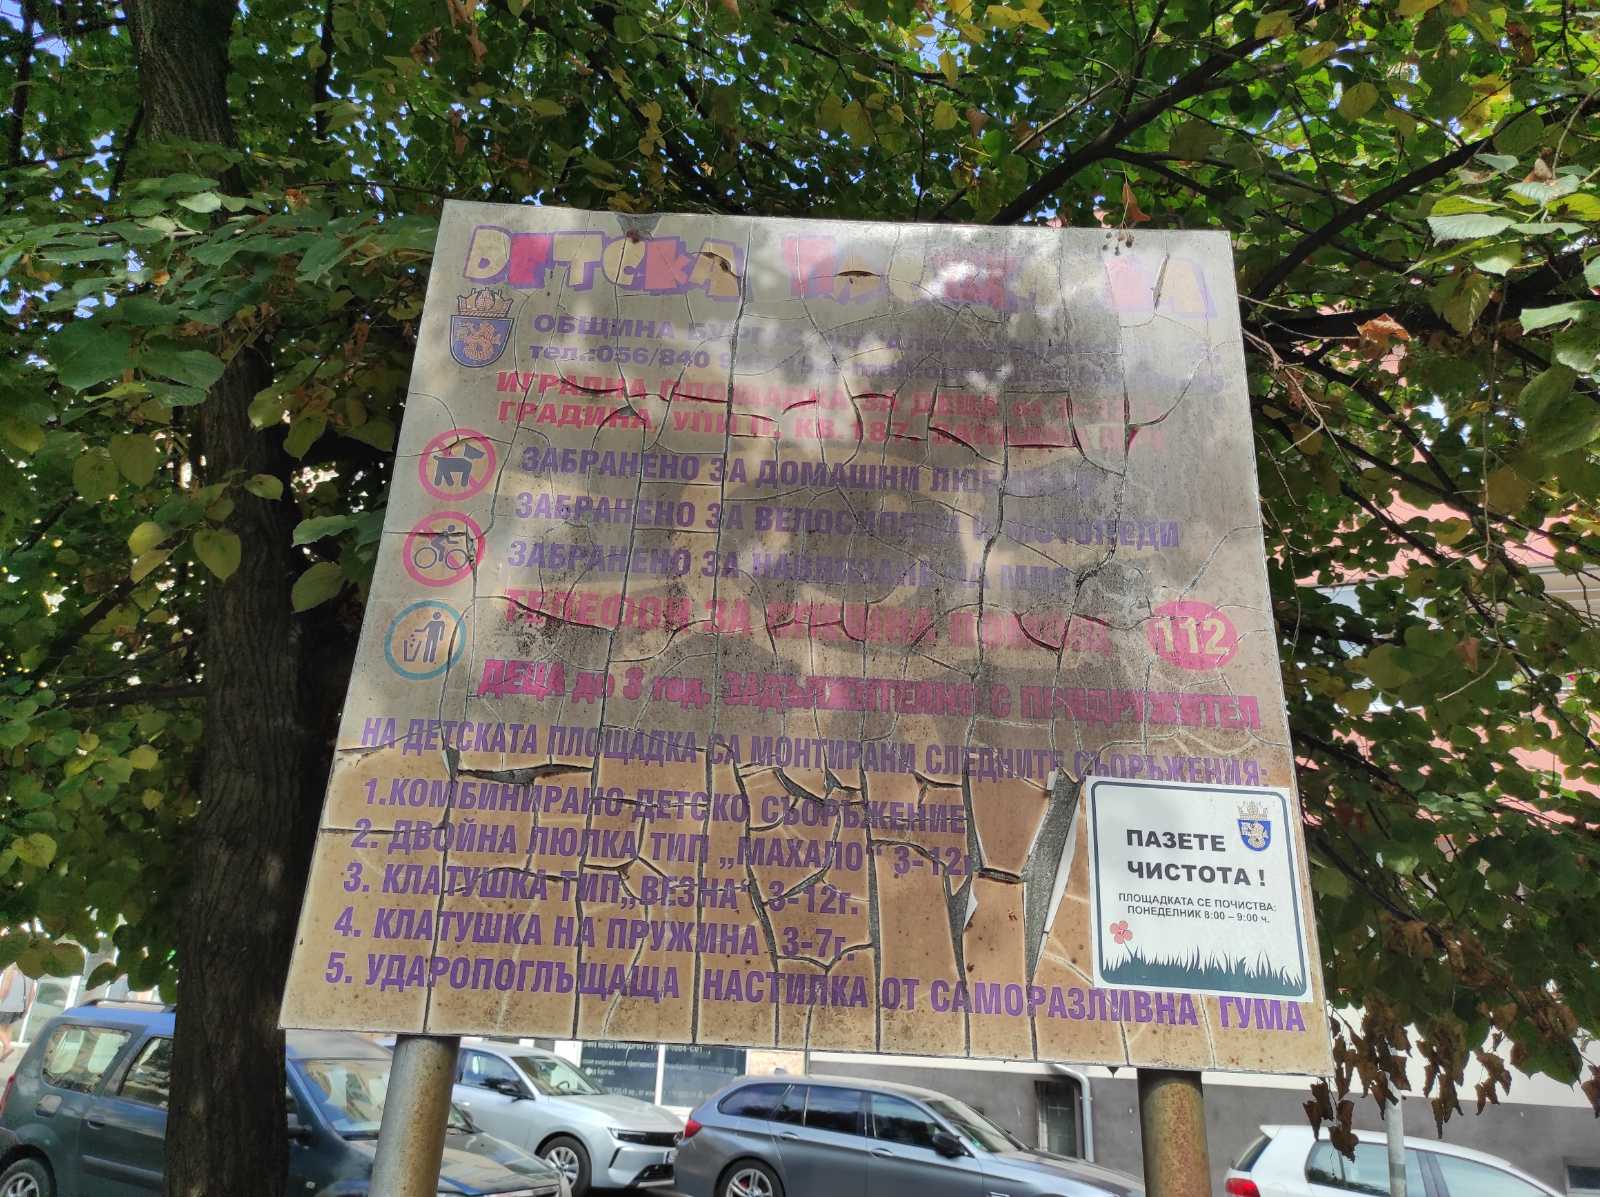 ДЕТСКА ПЛОЩАДКА
ОБЩИНА БУРГАС
тел.:056/840
ИГРАЛНА ПЛОЩАДКА ЗА ДЕЦА
ГРАДИНА, УПИ II, КВ.187,
ЗАБРАНЕНО ЗА ДОМАШНИ ЛЮБИМЦИ
ЗАБРАНЕНО ЗА ВЕЛОСИПЕДИ И МОТОПЕДИ
ЗАБРАНЕНО ЗА НАВЛИЗАНЕ НА МПС
ТЕЛЕФОН ЗА СПЕШНА ПОМОЩ 112
ДЕЦА до 3 год. ЗАДЪЛЖИТЕЛНО С ПРИДРУЖИТЕЛ
НА ДЕТСКАТА ПЛОЩАДКА СА МОНТИРАНИ СЛЕДНИТЕ СЪОРЪЖЕНИЯ:
1.КОМБИНИРАНО ДЕТСКО СЪОРЪЖЕНИЕ
2. ДВОЙНА ЛЮЛКА ТИП „МАХАЛО“ 3-12г.
3. КЛАТУШКА ТИП„ВЕЗНА“ 3-12г.
4. КЛАТУШКА НА ПРУЖИНА 3-7г.
5. УДАРОПОГЛЪЩАЩА НАСТИЛКА ОТ САМОРАЗЛИВНА ГУМА
ПАЗЕТЕ
ЧИСТОТА !
ПЛОЩАДКАТА СЕ ПОЧИСТВА:
ПОНЕДЕЛНИК 8:00 – 9:00 ч.